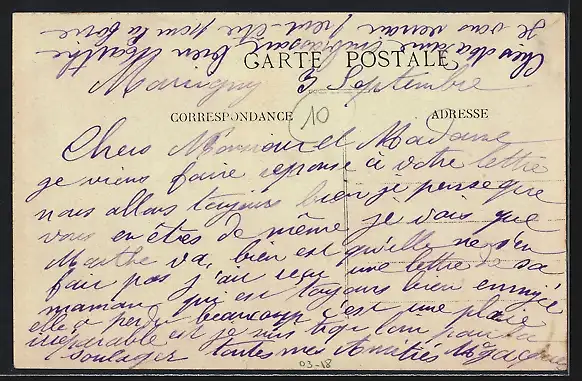 Je vous verrai peut-être pour la foire
Chers
bien
CARTE POSTALE
3 Septembre
CORRESPONDANCE
10
ADRESSE
Chers Monsieur et Madame
je viens faire reponse à votre lettre
nous allons toujours bien je pense que
vous en êtes de même je vois que
Marthe va bien est qu'elle ne s'en
fait pas j'ai reçu une lettre de sa
maman qui est toujours bien ennuyé
elle a perdu beaucoup c'est une plaie
est je suis trop loin pour la
soulager toutes mes Amitiés
03-18